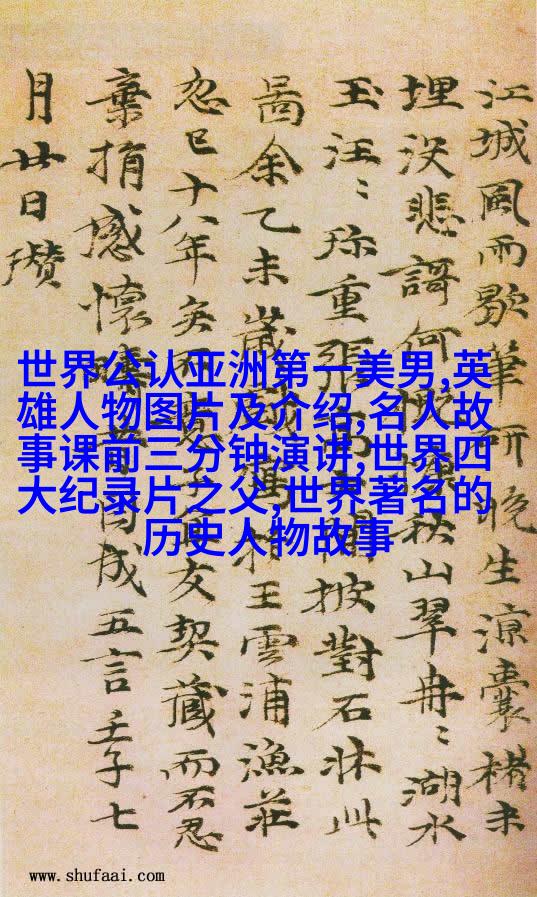 江城風雨歇筆研晚生涼囊楮未
埋沒悲謌何慨
秋山翠冉〻湖水
玉汪〻珎重張
披對石牀此
啚余乙未歲
王雲浦漁莊
忽已十八年矣不
友契藏而不忍
棄捐感懷
因成五言壬子七
月廿日瓚
世界公认亚洲第一美男,英
雄人物图片及介绍,名人故
事课前三分钟演讲,世界四
大纪录片之父,世界著名的
历史人物故事
www.shufaai.com